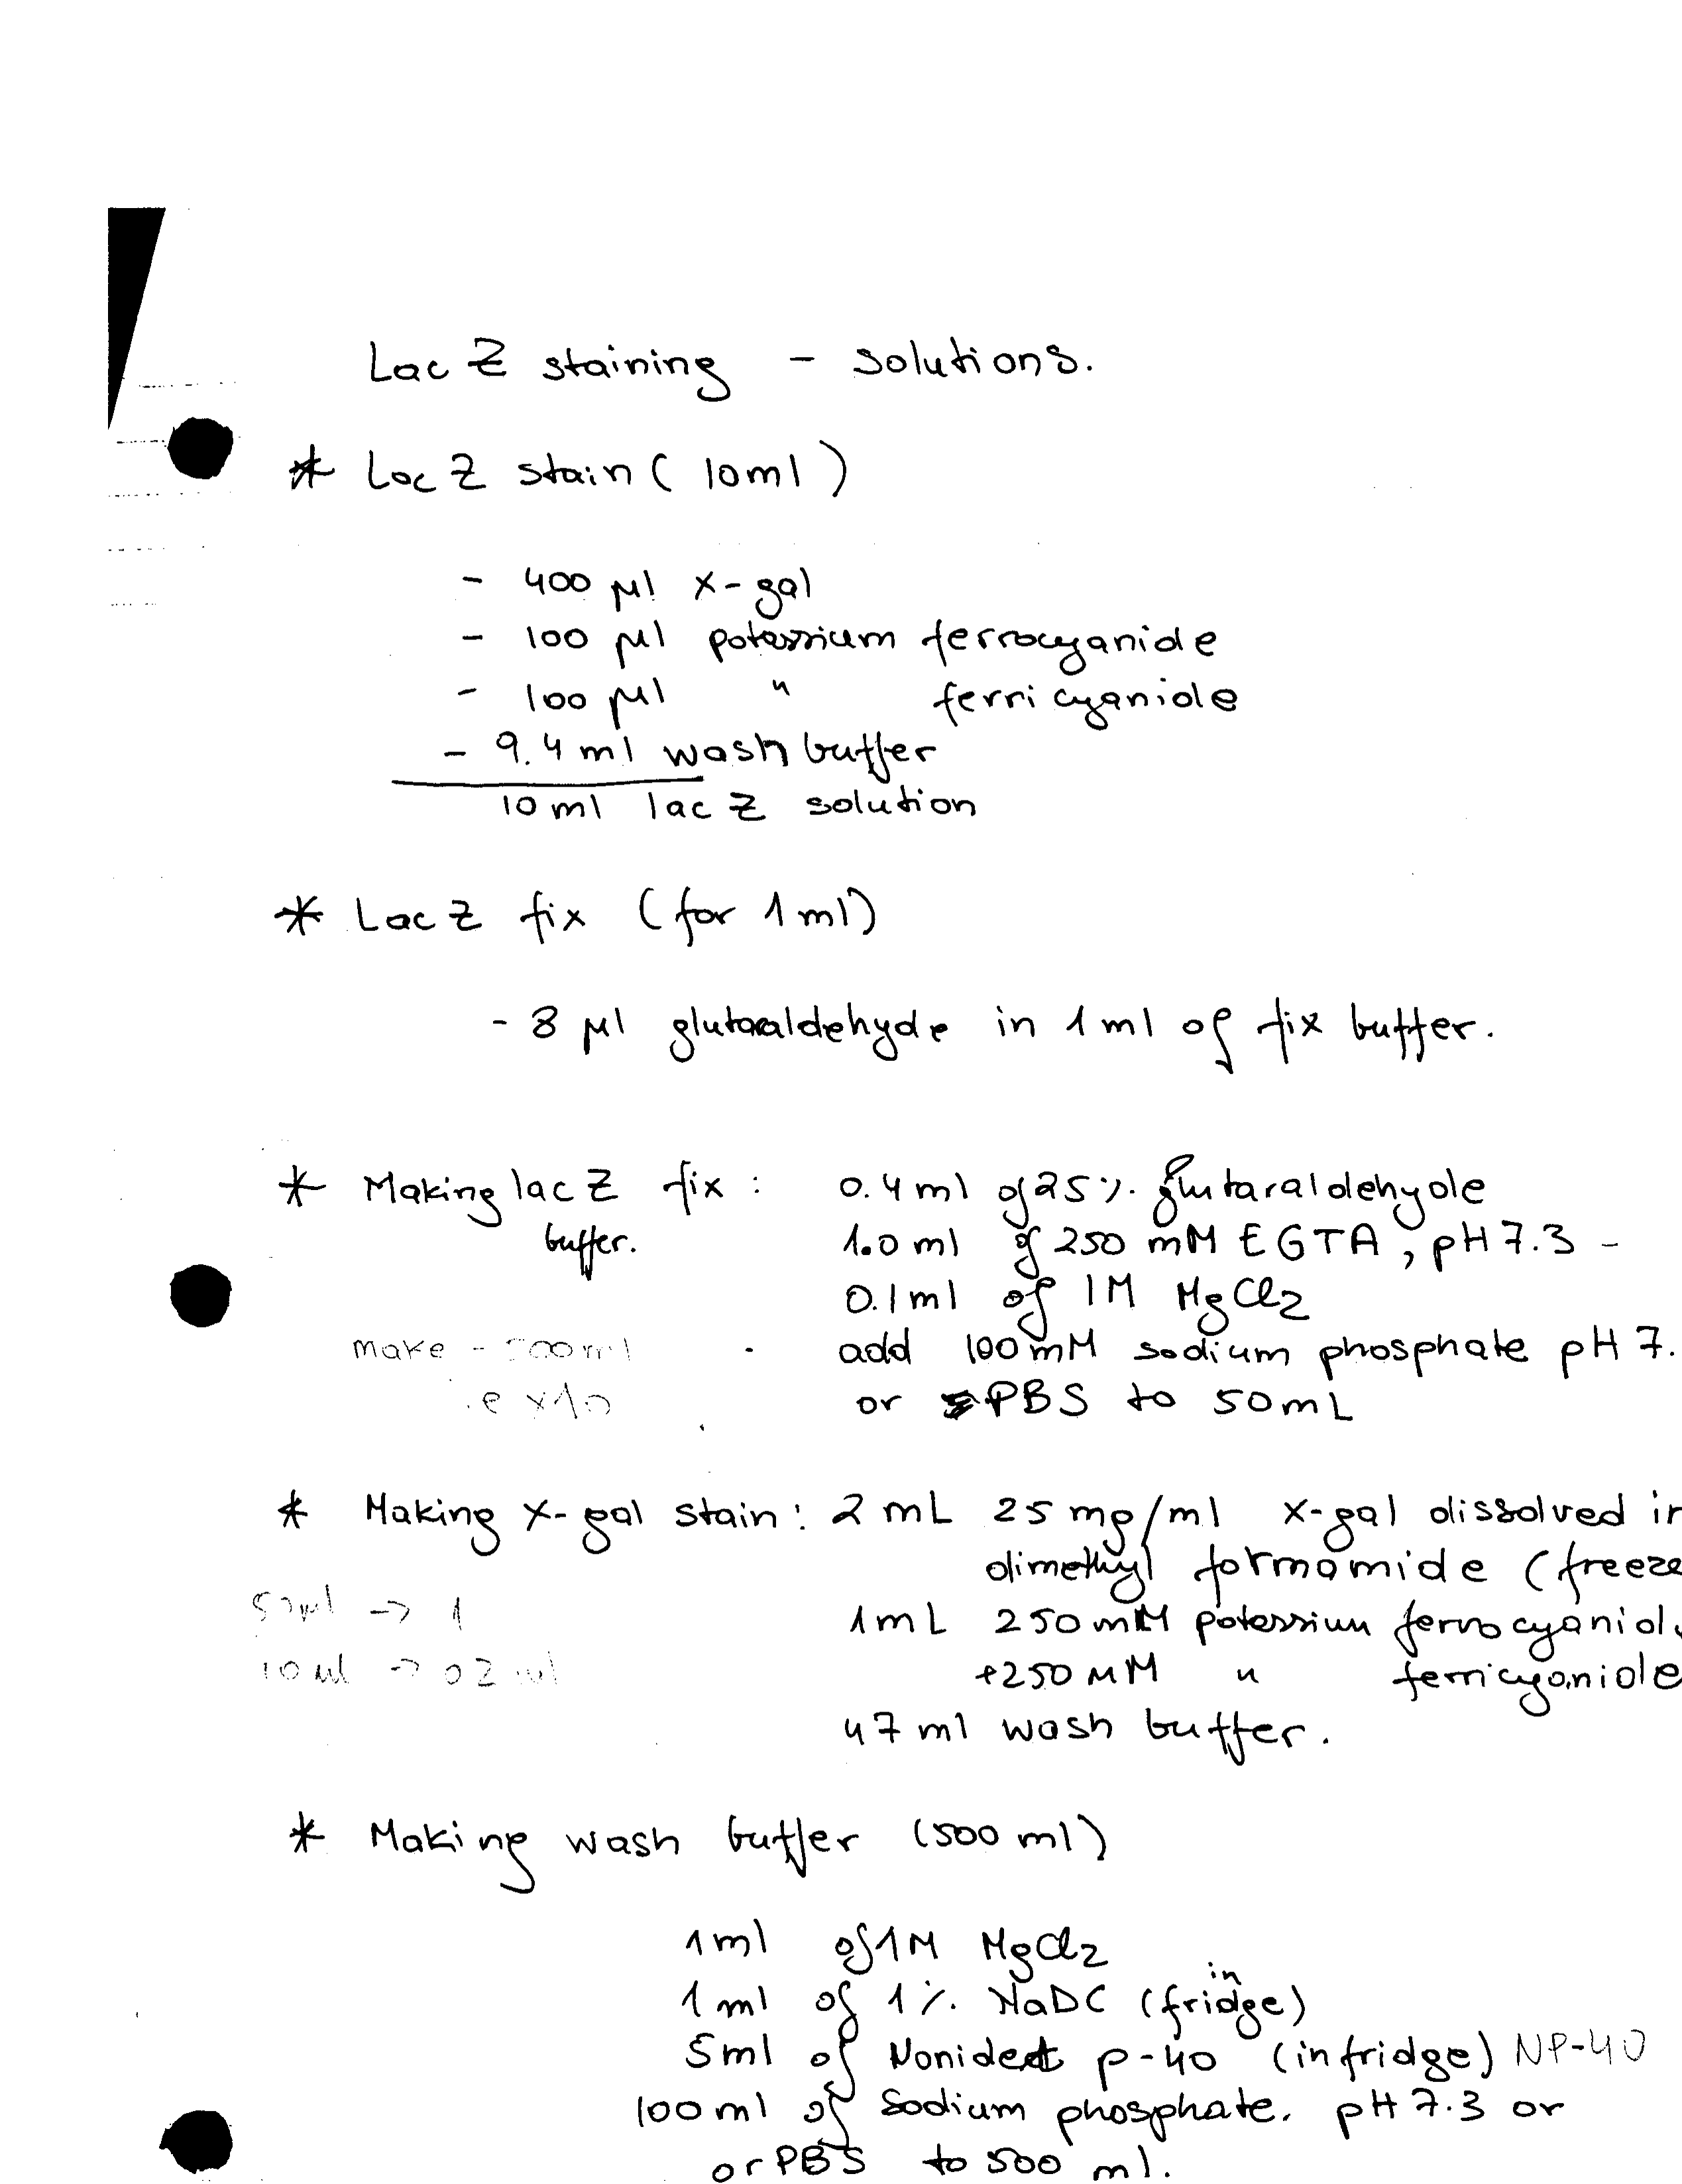 Lac Z staining - solutions.
* Lac Z stain ( 10ml )
- 400 µl x-gal
- 100 µl potassium ferrocyanide
- 100 µl " ferricyanide
- 9.4 ml wash buffer
10 ml lac Z solution
* Lac Z fix (for 1 ml)
- 8 µl glutaraldehyde in 1 ml of fix buffer.
* Making lac Z fix : 0.4 ml of 25 %. glutaraldehyde
buffer. 1.0 ml of 250 mM EGTA, pH 7.3 -
0.1 ml of 1M MgCl2
make - 500ml add 100 mM sodium phosphate pH 7.
x10 or PBS to 50mL
* Making X-gal stain : 2 mL 25 mg/ml x-gal dissolved in
dimethyl formamide (freeze
50ml -> 1 1mL 250 mM potassium ferrocyanid
10 ml -> 02 ml +250 mM " ferricyanide
47 ml wash buffer.
* Making wash buffer (500 ml)
1ml of 1M MgCl2
1 ml of 1 %. NaDC (in fridge)
5ml of Nonidet p-40 (in fridge) NP-40
100 ml of Sodium phosphate. pH 7.3 or
or PBS to 500 ml.